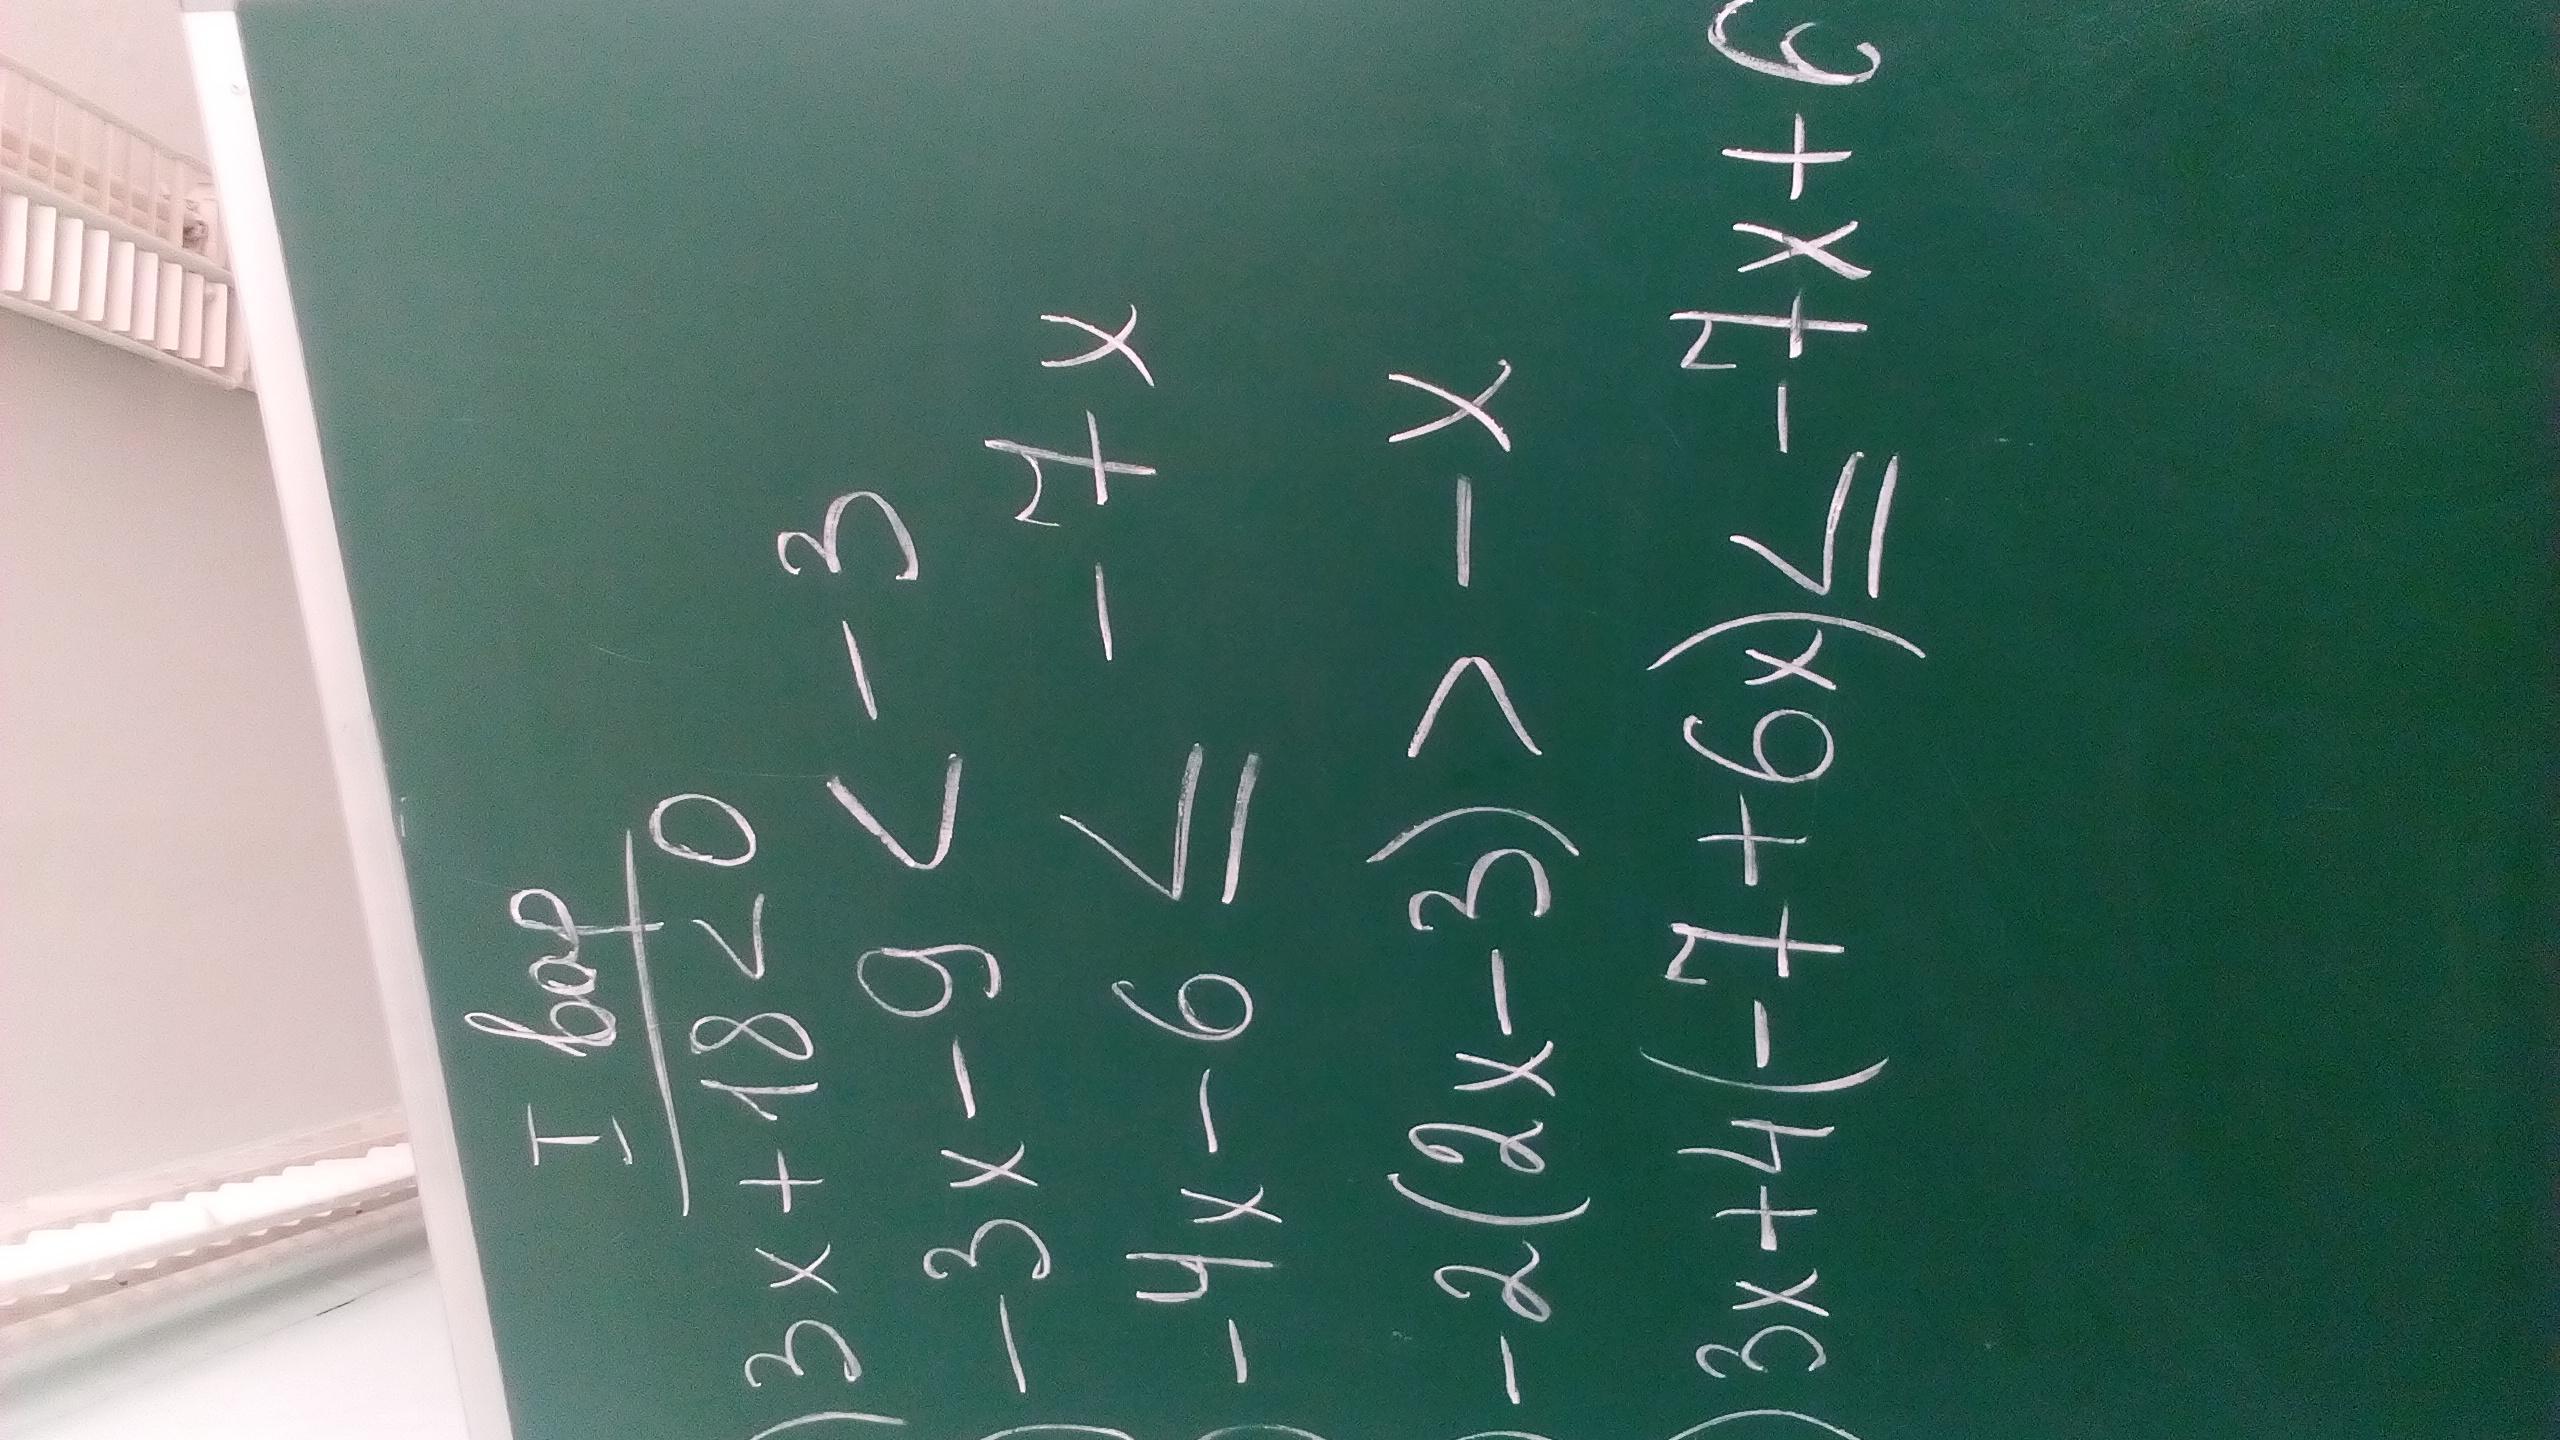 I вар
) 3x+18<0
) -3x-9 < -3
) -4x-6 ≤ -7x
) -2(2x-3) > -x
) 3x+4(-7+6x) ≤ -7x+6